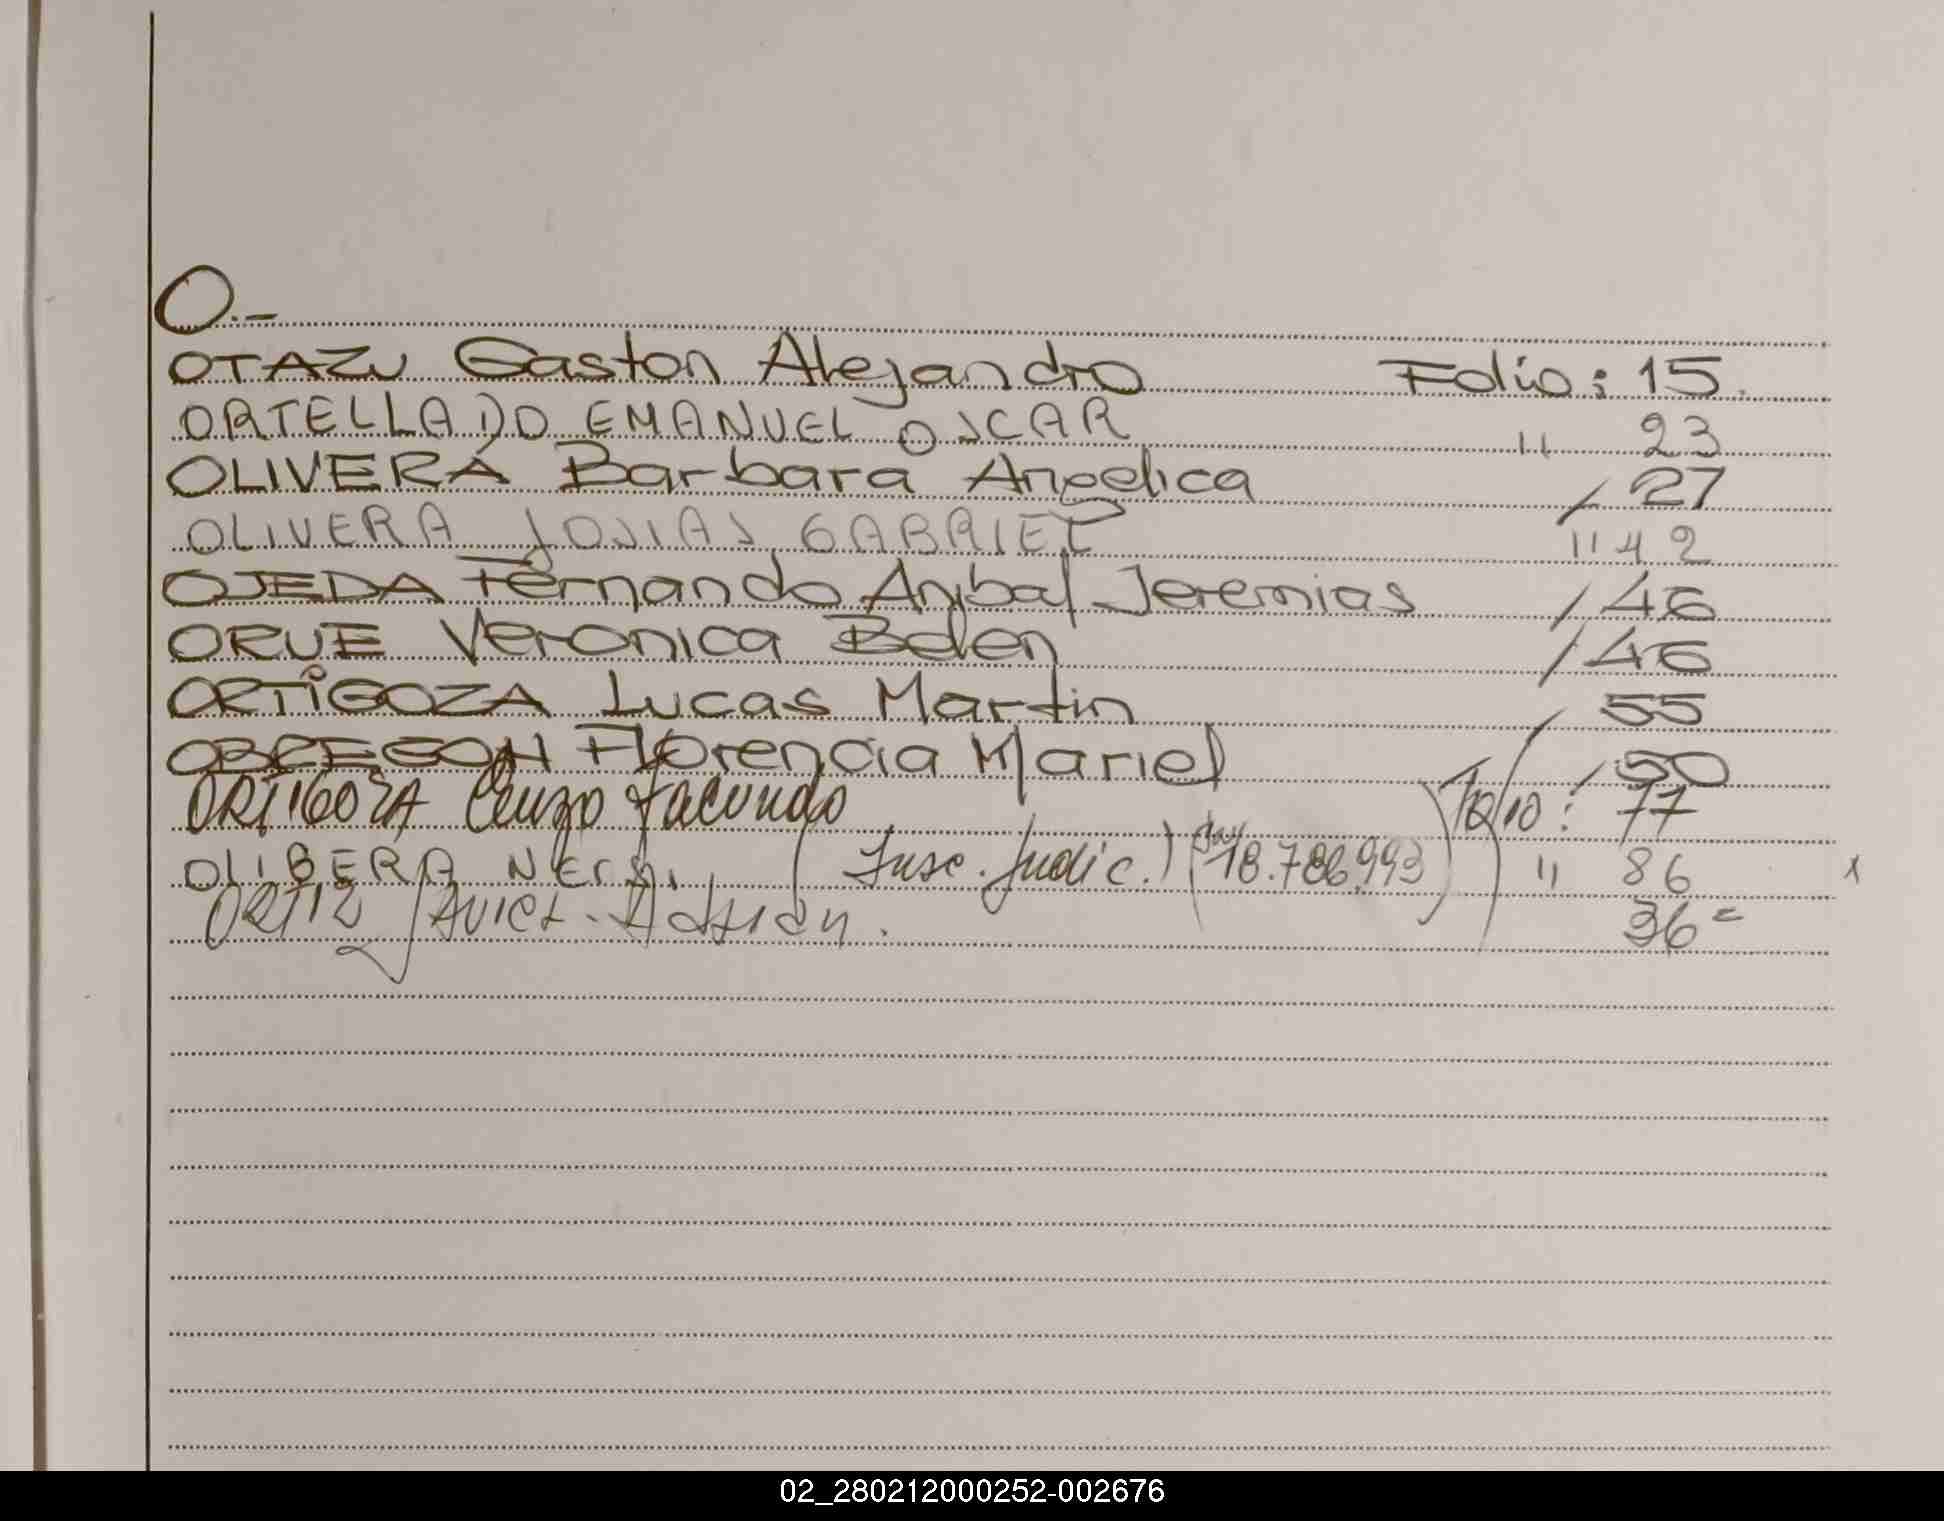 O.-
OTAZU Gaston Alejandro Folio: 15.
ORTELLADO EMANUEL OSCAR " 23
OLIVERA Barbara Angelica / 27
OLIVERA JOSIAS GABRIEL " 42
OJEDA Fernando Anibal Jeremias / 46
ORUE Veronica Belen / 46
ORTIGOZA Lucas Martin / 55
OBREGON Florencia Mariel / 50
ORTIGOZA Enzo Facundo Folio: 77
OLIBERA NELSI (Insc. Judic.) (18.786.993) " 86 x
ORTIZ Javier Adrian. 36=
02_280212000252-002676